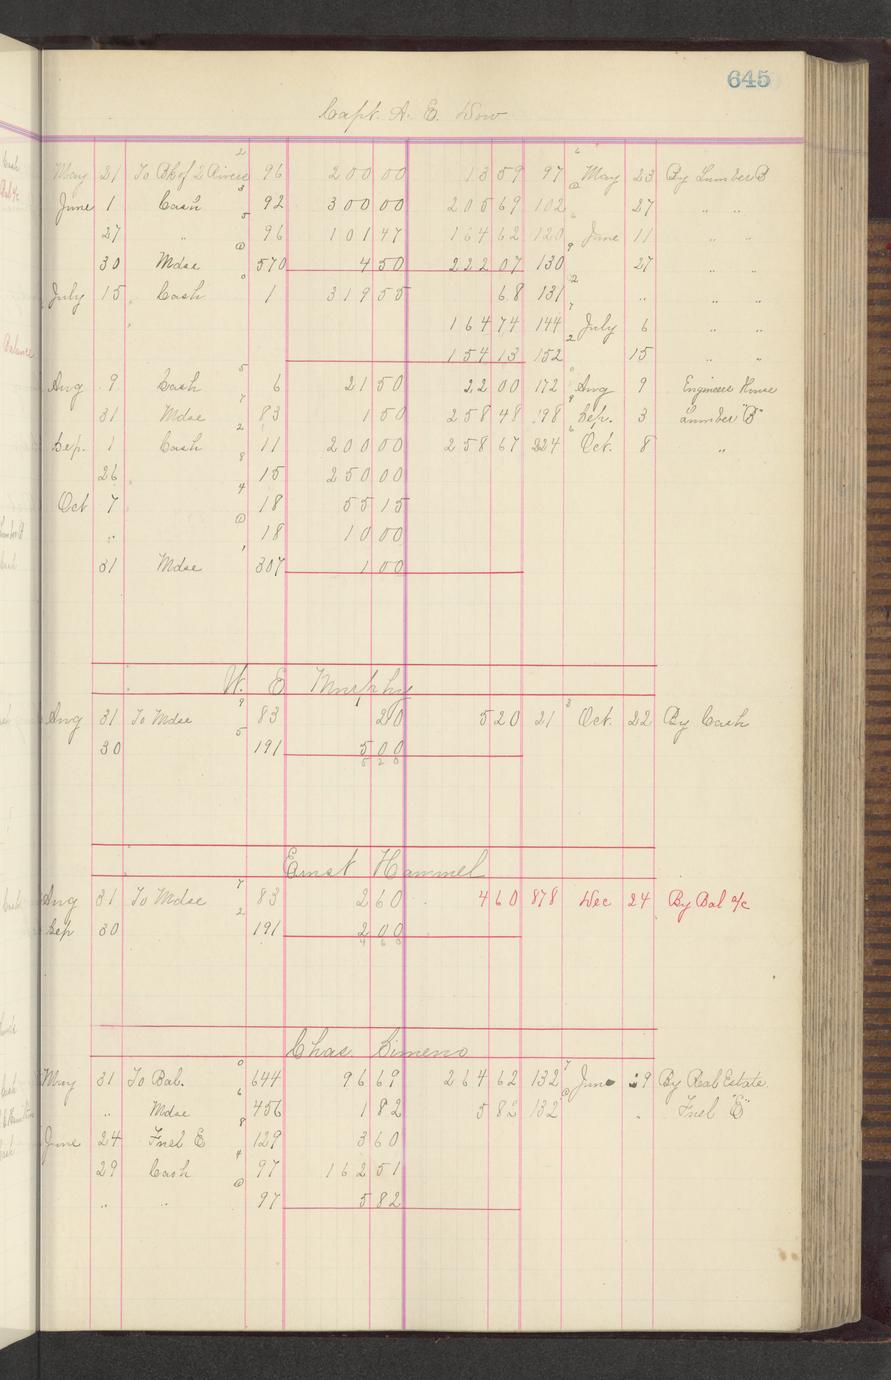 645
Capt. A. E. Dow
May 21 To Bk of 2 Rivers 96 200 00 13 59 97 May 23 By Lumber B
June 1 Cash 92 300 00 205 69 102 27 " "
27 " 96 101 47 164 62 120 June 11 " "
30 Mdse 570 4 50 222 07 130 27 " "
July 15 Cash 1 319 55 68 131 " " "
164 74 144 July 6 " "
154 13 152 15 " "
Aug 9 Cash 6 21 50 22 00 172 Aug 9 Engineer House
31 Mdse 83 1 50 258 48 198 Sep. 3 Lumber "B"
Sep. 1 Cash 11 200 00 258 67 224 Oct. 8 "
26 15 250 00
Oct 7 18 55 15
" 18 10 00
31 Mdse 307 1 00
W. E Murphy
Aug 31 To Mdse 83 20 5 20 21 Oct. 22 By Cash
30 191 5 00
5 20
Ernst Hammel
Aug 31 To Mdse 83 2 60 4 60 878 Dec 24 By Bal a/c
Sep 30 191 2 00
4 60
Chas. Simeno
May 31 To Bal. 644 96 69 264 62 132 June 29 By Real Estate
" Mdse 456 1 82 5 82 132 " Fuel "E"
June 24 Fuel E 129 3 60
29 Cash 97 162 51
" " 97 5 82